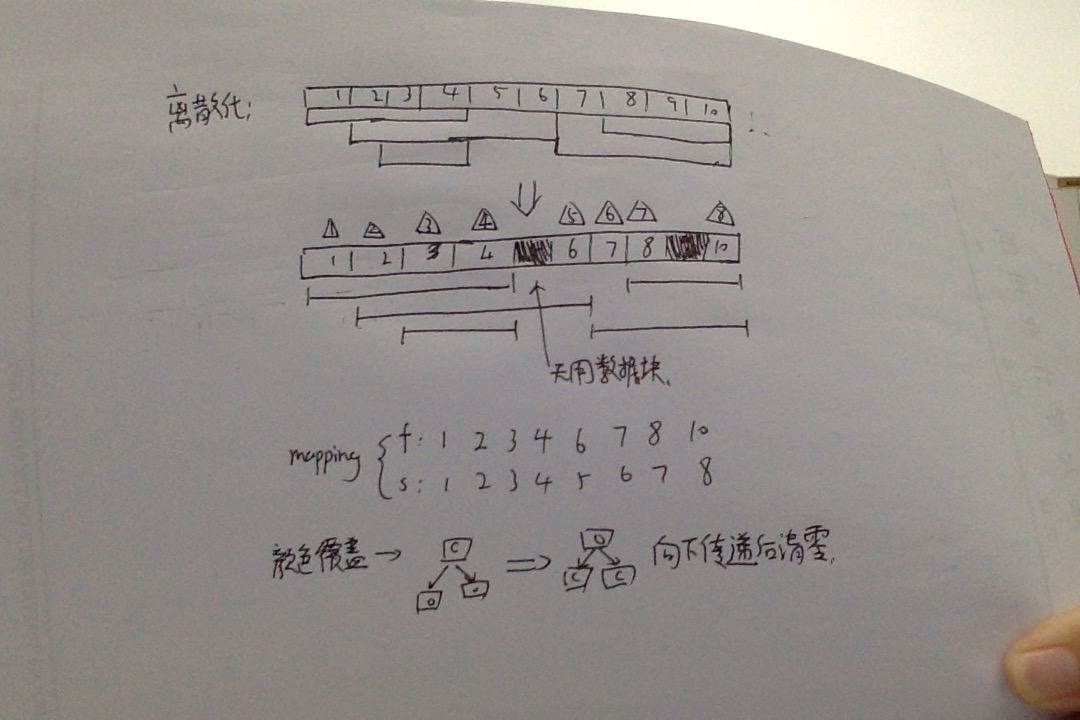 离散化;
1 2 3 4 5 6 7 8 9 10
1 2 3 4 5 6 7 8
1 2 3 4 6 7 8 10
无用数据块.
mapping { f: 1 2 3 4 6 7 8 10
s: 1 2 3 4 5 6 7 8
颜色覆盖 → C ⇒ 0 向下传递后清零.
0 0 C C